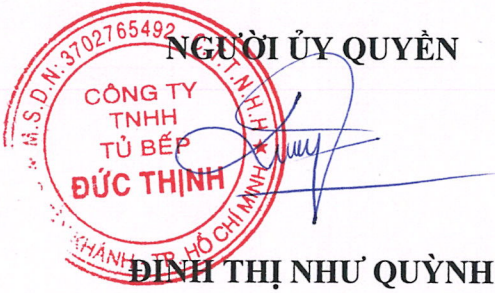 NGƯỜI ỦY QUYỀN
M.S.D.N: 3702765492 C.T.T.N.H.H
CÔNG TY
TNHH
TỦ BẾP
ĐỨC THỊNH
KHÁNH - TP. HỒ CHÍ MINH
ĐINH THỊ NHƯ QUỲNH